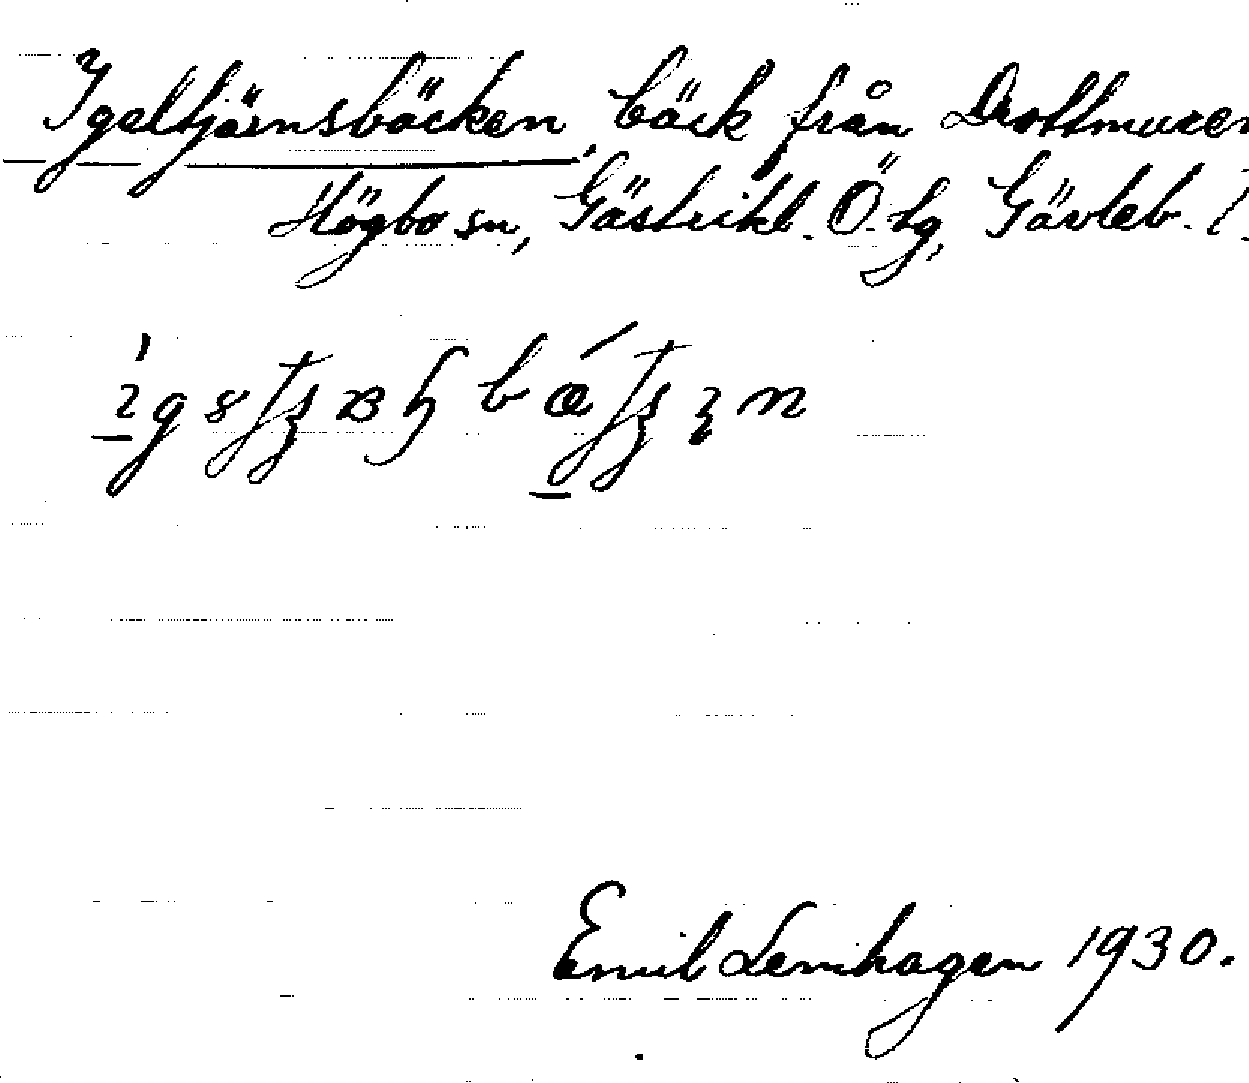 Igeltjärnsbäcken, bäck från Drottmuren
Högbo sn, Gästrikl. Ö. tg, Gävleb. l.
Emil Lenhagen 1930.